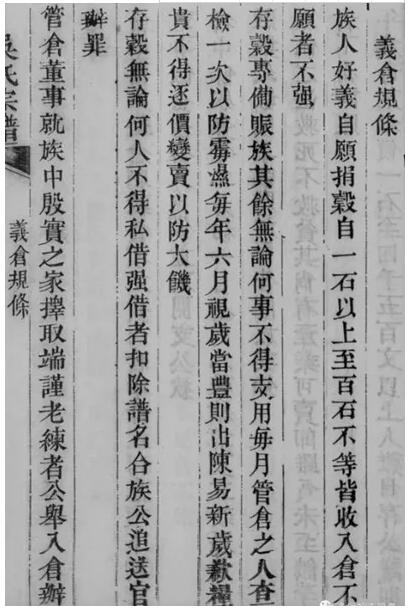 義倉規條
族人好義自願捐穀自一石以上至百石不等皆收入倉不
願者不强
存穀專備賑族其餘無論何事不得支用每月管倉之人查
檢一次以防霉濕每年六月視歲當豐則出陳易新歲歉糧
貴不得逐價變賣以防大饑
存穀無論何人不得私借强借者扣除譜名合族公追送官
辦罪
管倉董事就族中殷實之家擇取端謹老練者公舉入倉辦
吳氏宗譜
義倉規條